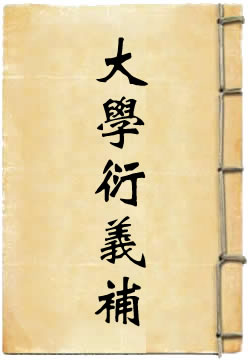 大學衍義補